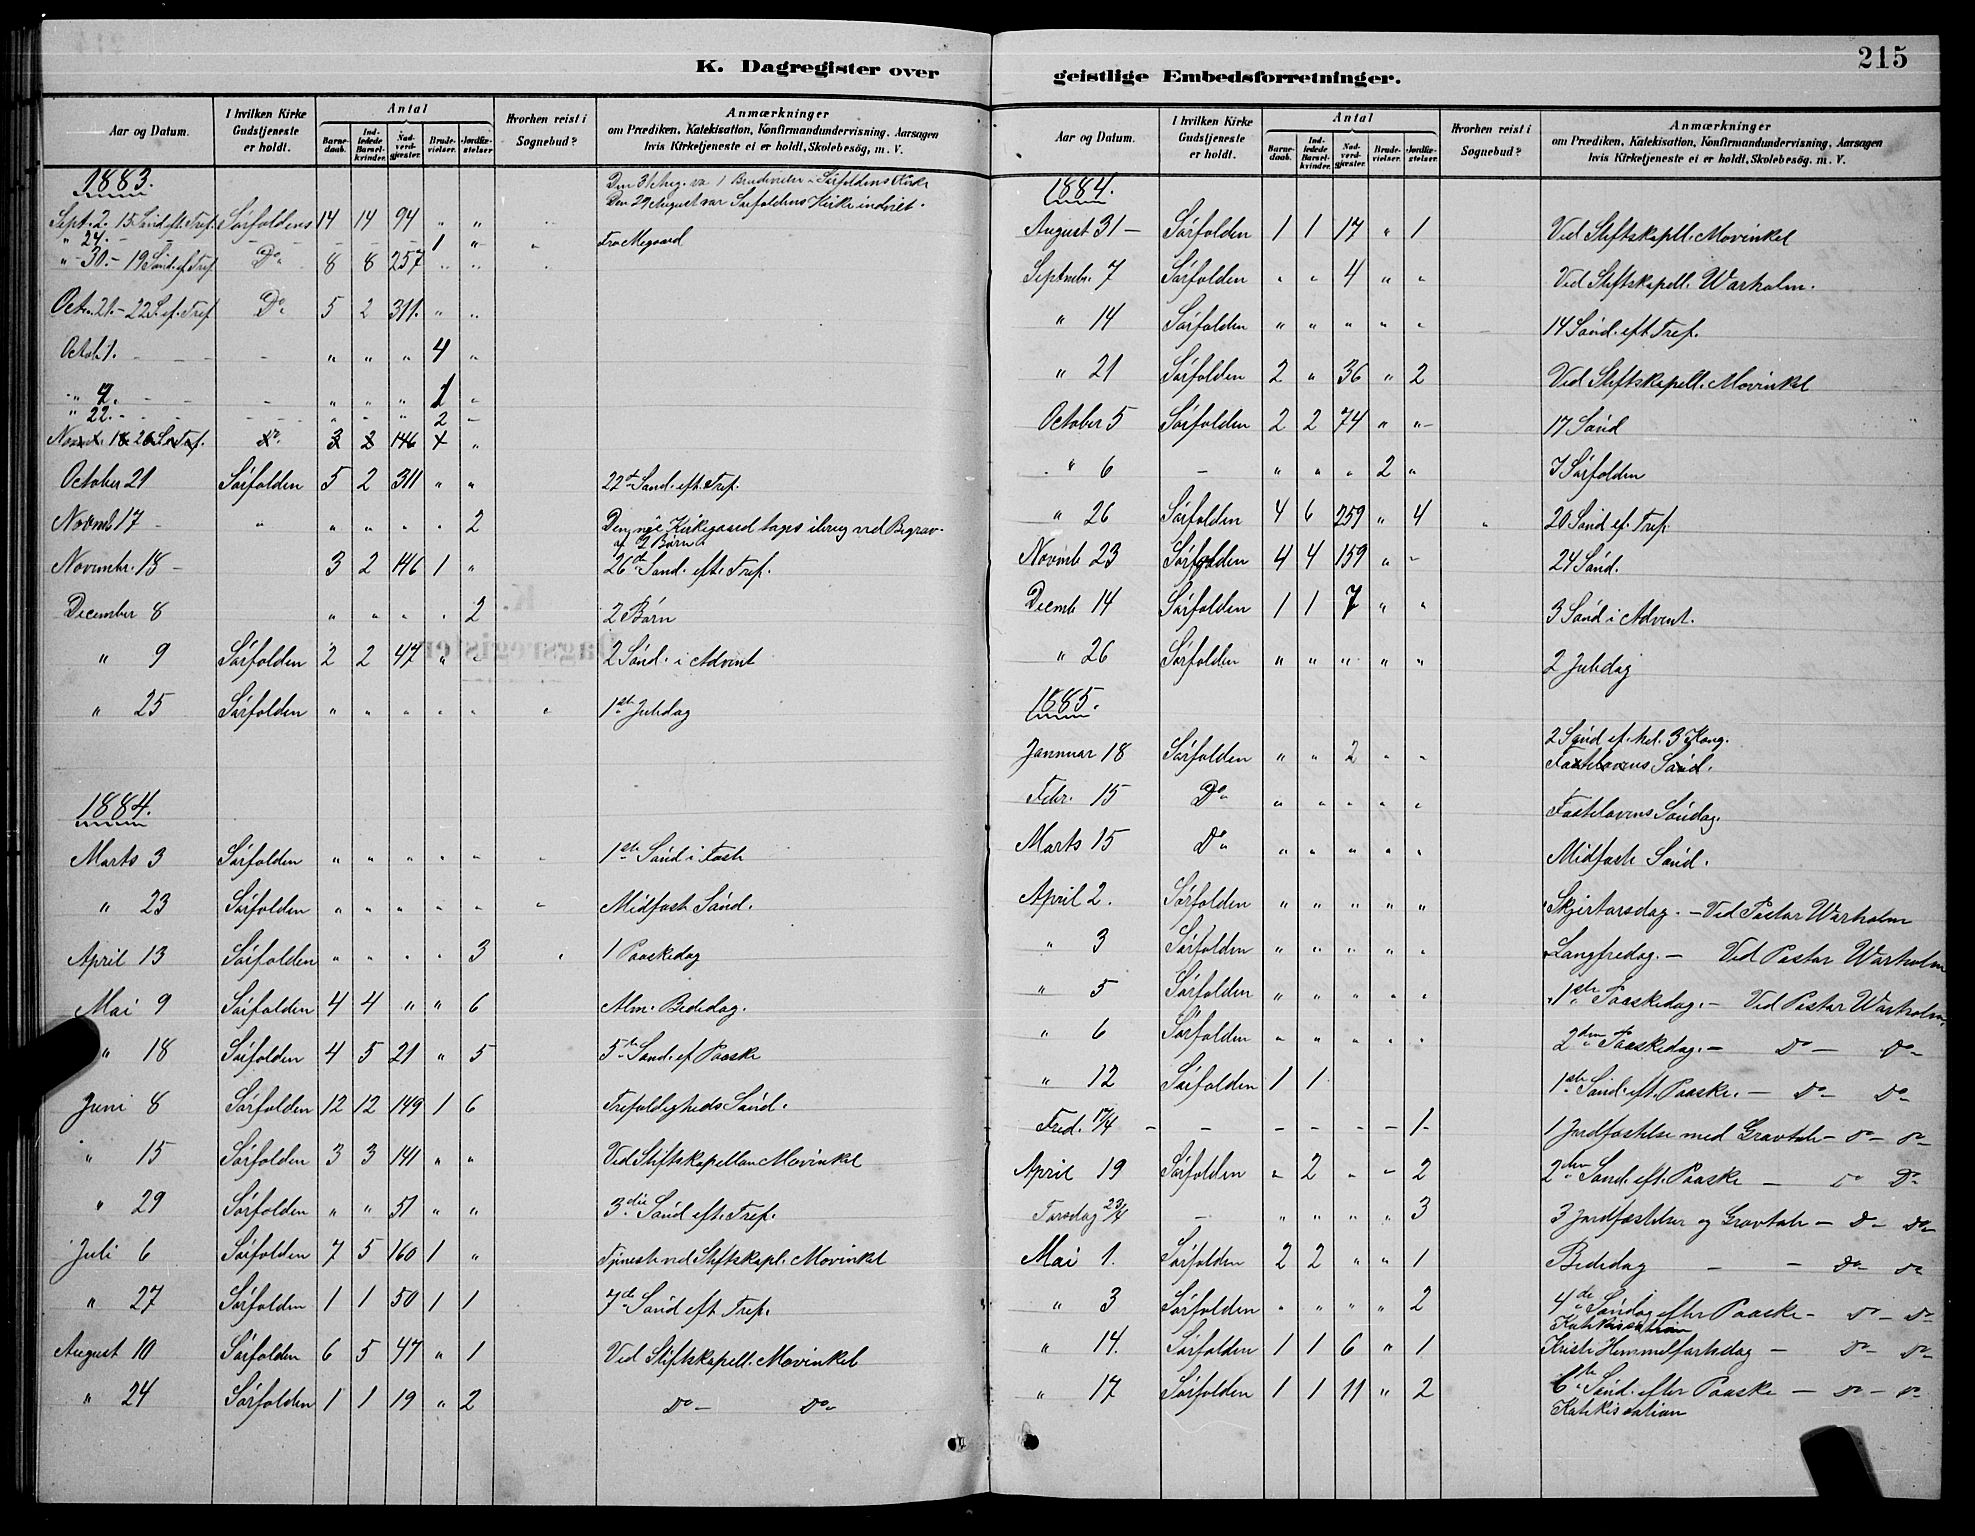 215
K. Dagregister over
geistlige Embedsforretninger.
Aar og Datum.
I hvilken Kirke Gudstjeneste er holdt.
Antal
Barne-daab. Ind-ledede Barsel-kvinder. Nad-verd-gjester. Brude-vielser. Jordfæ-stelser.
Hvorhen reist i Sognebud?
Anmærkninger
om Prædiken, Katekisation, Konfirmandundervisning, Aarsagen
hvis Kirketjeneste ei er holdt, Skolebesög, m. V.
1883.
Den 31 Aug. va 1 Brudevielse i Sørfoldens Kirke
Den 29 August var Sørfoldens Kirke indviet.
Sept. 2. 15 Sønd eft Tref. Sørfoldens 14 14 94 " "
" 24. - - - - - 1 " " Fra Megaard
" 30. - 19 Sønd. ef Tref Do 8 8 257 " "
Oct. 21. - 22 S. ef. Tref Do 5 2 311. " "
Octob. 1. - - - " " " 4 "
" 9. - - - " " " 1 "
" 22. - - - " " " 2 -
Novemb. 18 26 S. e. Tref. do. 3 2 146 1 "
October 21 Sørfolden 5 2 311 " " 22de Sønd. eft. Tref.
Novemb 17 - " " " " " 2 Den nye Kirkegaard tages ibrug ved Begrav-
af 2 Børn.
Novembr. 18 - 3 2 146 1 " 26de Sønd. eft. Tref.
December 8 " " " " 2 2 Børn
" 9 Sørfolden 2 2 47 " " 2 Sønd. i Advent
" 25 Sørfolden " " " " " " 1ste Juledag
1884.
Marts 3 Sørfolden " " " " " " 1ste Sønd i Faste
" 23 Sørfolden " " " " " " Midfaste Sønd.
April 13 Sørfolden " " " " 3 " 1 Paaskedag
Mai 9 Sørfolden 4 4 " " 6 Alm. Bededag.
" 18 Sørfolden 4 5 21 " 5 5te Sønd. ef Paaske
Juni 8 Sørfolden 12 12 149 1 6 Trefoldigheds Sønd.
" 15 Sørfolden 3 3 141 " " Ved Stiftskapellan Movinkel
" 29 Sørfolden " " 51 " " 3die Sønd eft. Tref.
Juli 6 Sørfolden 7 5 160 1 " Tjeneste ved Stiftskapl. Movinkel
" 27 Sørfolden 1 1 50 1 1 7de Sønd eft Tref.
August 10 Sørfolden 6 5 47 " 1 Ved Stiftskapell. Movinkel
" 24 Sørfolden 1 1 19 " 2 Do - Do -
Aar og Datum.
I hvilken Kirke Gudstjeneste er holdt.
Antal
Barne-daab. Ind-ledede Barsel-kvinder. Nad-verd-gjester. Brude-vielser. Jordfæ-stelser.
Hvorhen reist i Sognebud?
Anmærkninger
om Prædiken, Katekisation, Konfirmandundervisning, Aarsagen
hvis Kirketjeneste ei er holdt, Skolebesög. m. V.
1884.
August 31 - Sørfolden 1 1 17 " 1 Ved Stiftskapll. Movinkel
Septembr. 7 Sørfolden " " 4 " " Ved Stiftskapell. Warholm.
" 14 Sørfolden " " " " " 14 Sønd. eft Tref.
" 21 Sørfolden 2 " 36 " 2 Ved Stiftskapell. Movinkel
October 5 Sørfolden 2 2 74 " " 17 Sønd
" 6 - " " " 2 " I Sørfolden
" 26 Sørfolden 4 6 259 " 4 " 20 Sønd ef. Tref.
Novemb 23 Sørfolden 4 4 159 " - 24 Sønd.
Decemb 14 Sørfolden 1 1 7 " " 3 Sønd i Advent.
" 26 Sørfolden " " " " " 2 Juledag
1885.
Januar 18 Sørfolden " " 2 " " 2 Sønd ef. Hel. 3 Kong.
Fastelavens Sønd.
Febr. 15 Do " " " " " Fastelavens Søndag.
Marts 15 Do " " " " " Midfaste Sønd.
April 2. Sørfolden " " " " " Skjærtorsdag. - Ved Pastor Warholm
" 3 Sørfolden " " " " " Langfredag. - Ved Pastor Warholm
" 5 Sørfolden " " " " " 1ste Paaskedag. - Ved Pastor Warholm
" 6 Sørfolden " " " " " 2den Paaskedag. - Do - Do -
" 12 Sørfolden 1 1 1ste Sønd. eft. Paaske. - Do - Do -
Fred. 17/4 - - - - - - 1 - 1 Jordfæstelse med Gravtale - Do - Do -
April 19 Sørfolden " 2 " - 2 2den Sønd. eft. Paaske - Do Do -
Torsdag 23/4 - " " " " 3 3 Jordfæstelser og Gravtale - Do - Do -
Mai 1. Sørfolden 2 2 " " 1 Bededag - - Do - Do
" 3 Sørfolden " " " " 2 4de Søndag efter Paaske - Do - Do -
Katekisation
" 14. Sørfolden 1 1 6 " 1 Kristi Himmelfartsdag - Do - Do -
" 17 Sørfolden 1 1 11 " 2 6te Sønd. efter Paaske - Do - Do -
Katekisation